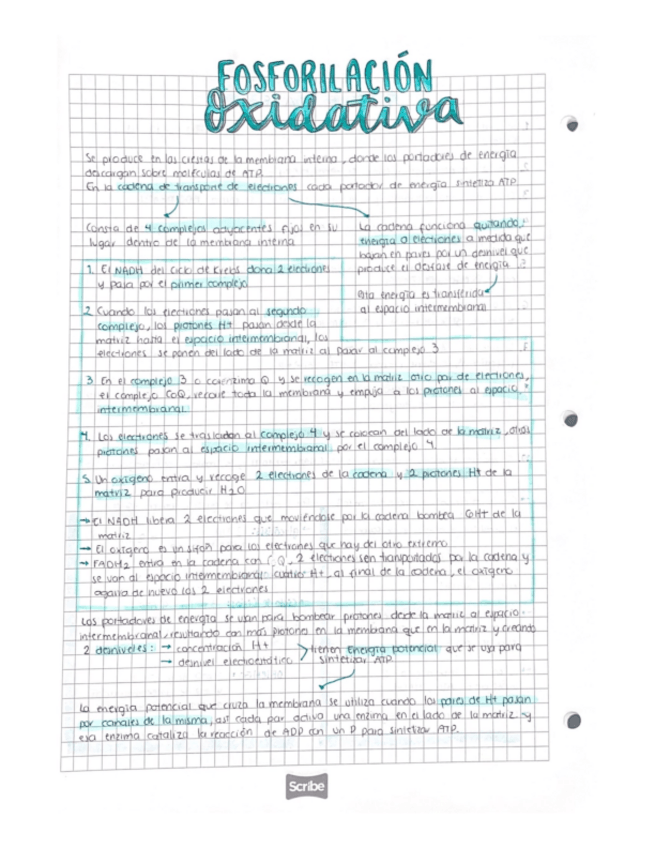 FOSFORILACIÓN
Oxidativa
Se produce en las crestas de la membrana interna, donde los portadores de energía
descargan sobre moléculas de ATP.
En la cadena de transporte de electrones cada portador de energía sintetiza ATP.
Consta de 4 complejos adyacentes fijos en su
lugar dentro de la membrana interna
La cadena funciona quitando
energía a electrones a medida que
bajan en pares por un desnivel que
produce el desfase de energía
Esta energía es transferida
al espacio intermembranal
1. El NADH del ciclo de Krebs dona 2 electrones
y pasa por el primer complejo
2. Cuando los electrones pasan al segundo
complejo, los protones H+ pasan desde la
matriz hasta el espacio intermembranal, los
electrones se ponen del lado de la matriz al pasar al complejo 3
3. En el complejo 3 o coenzima Q y se recogen en la matriz otro par de electrones,
el complejo CoQ, recorre toda la membrana y empuja a los protones al espacio
intermembranal
4. Los electrones se trasladan al complejo 4 y se colocan del lado de la matriz, otros
protones pasan al espacio intermembranal por el complejo 4
5. Un oxígeno entra y recoge 2 electrones de la cadena y 2 protones H+ de la
matriz para producir H2O
→ El NADH libera 2 electrones que moviéndose por la cadena bombea 6H+ de la
matriz
→ El oxígeno es un para los electrones que hay del otro extremo
→ FADH2 entra en la cadena con Q, 2 electrones son transportados por la cadena y
se van al espacio intermembranal cuatro H+, al final de la cadena, el oxígeno
agarra de nuevo los 2 electrones
Los portadores de energía se usan para bombear protones desde la matriz al espacio
intermembranal, resultando con más protones en la membrana que en la matriz y creando
2 desniveles: → concentración H+
→ desnivel electrostático
tienen energía potencial que se usa para
sintetizar ATP
La energía potencial que cruza la membrana se utiliza cuando los pares de H+ pasan
por canales de la misma, así cada par activa una enzima en el lado de la matriz y
esa enzima cataliza la reacción de ADP con un P para sintetizar ATP.
Scribe